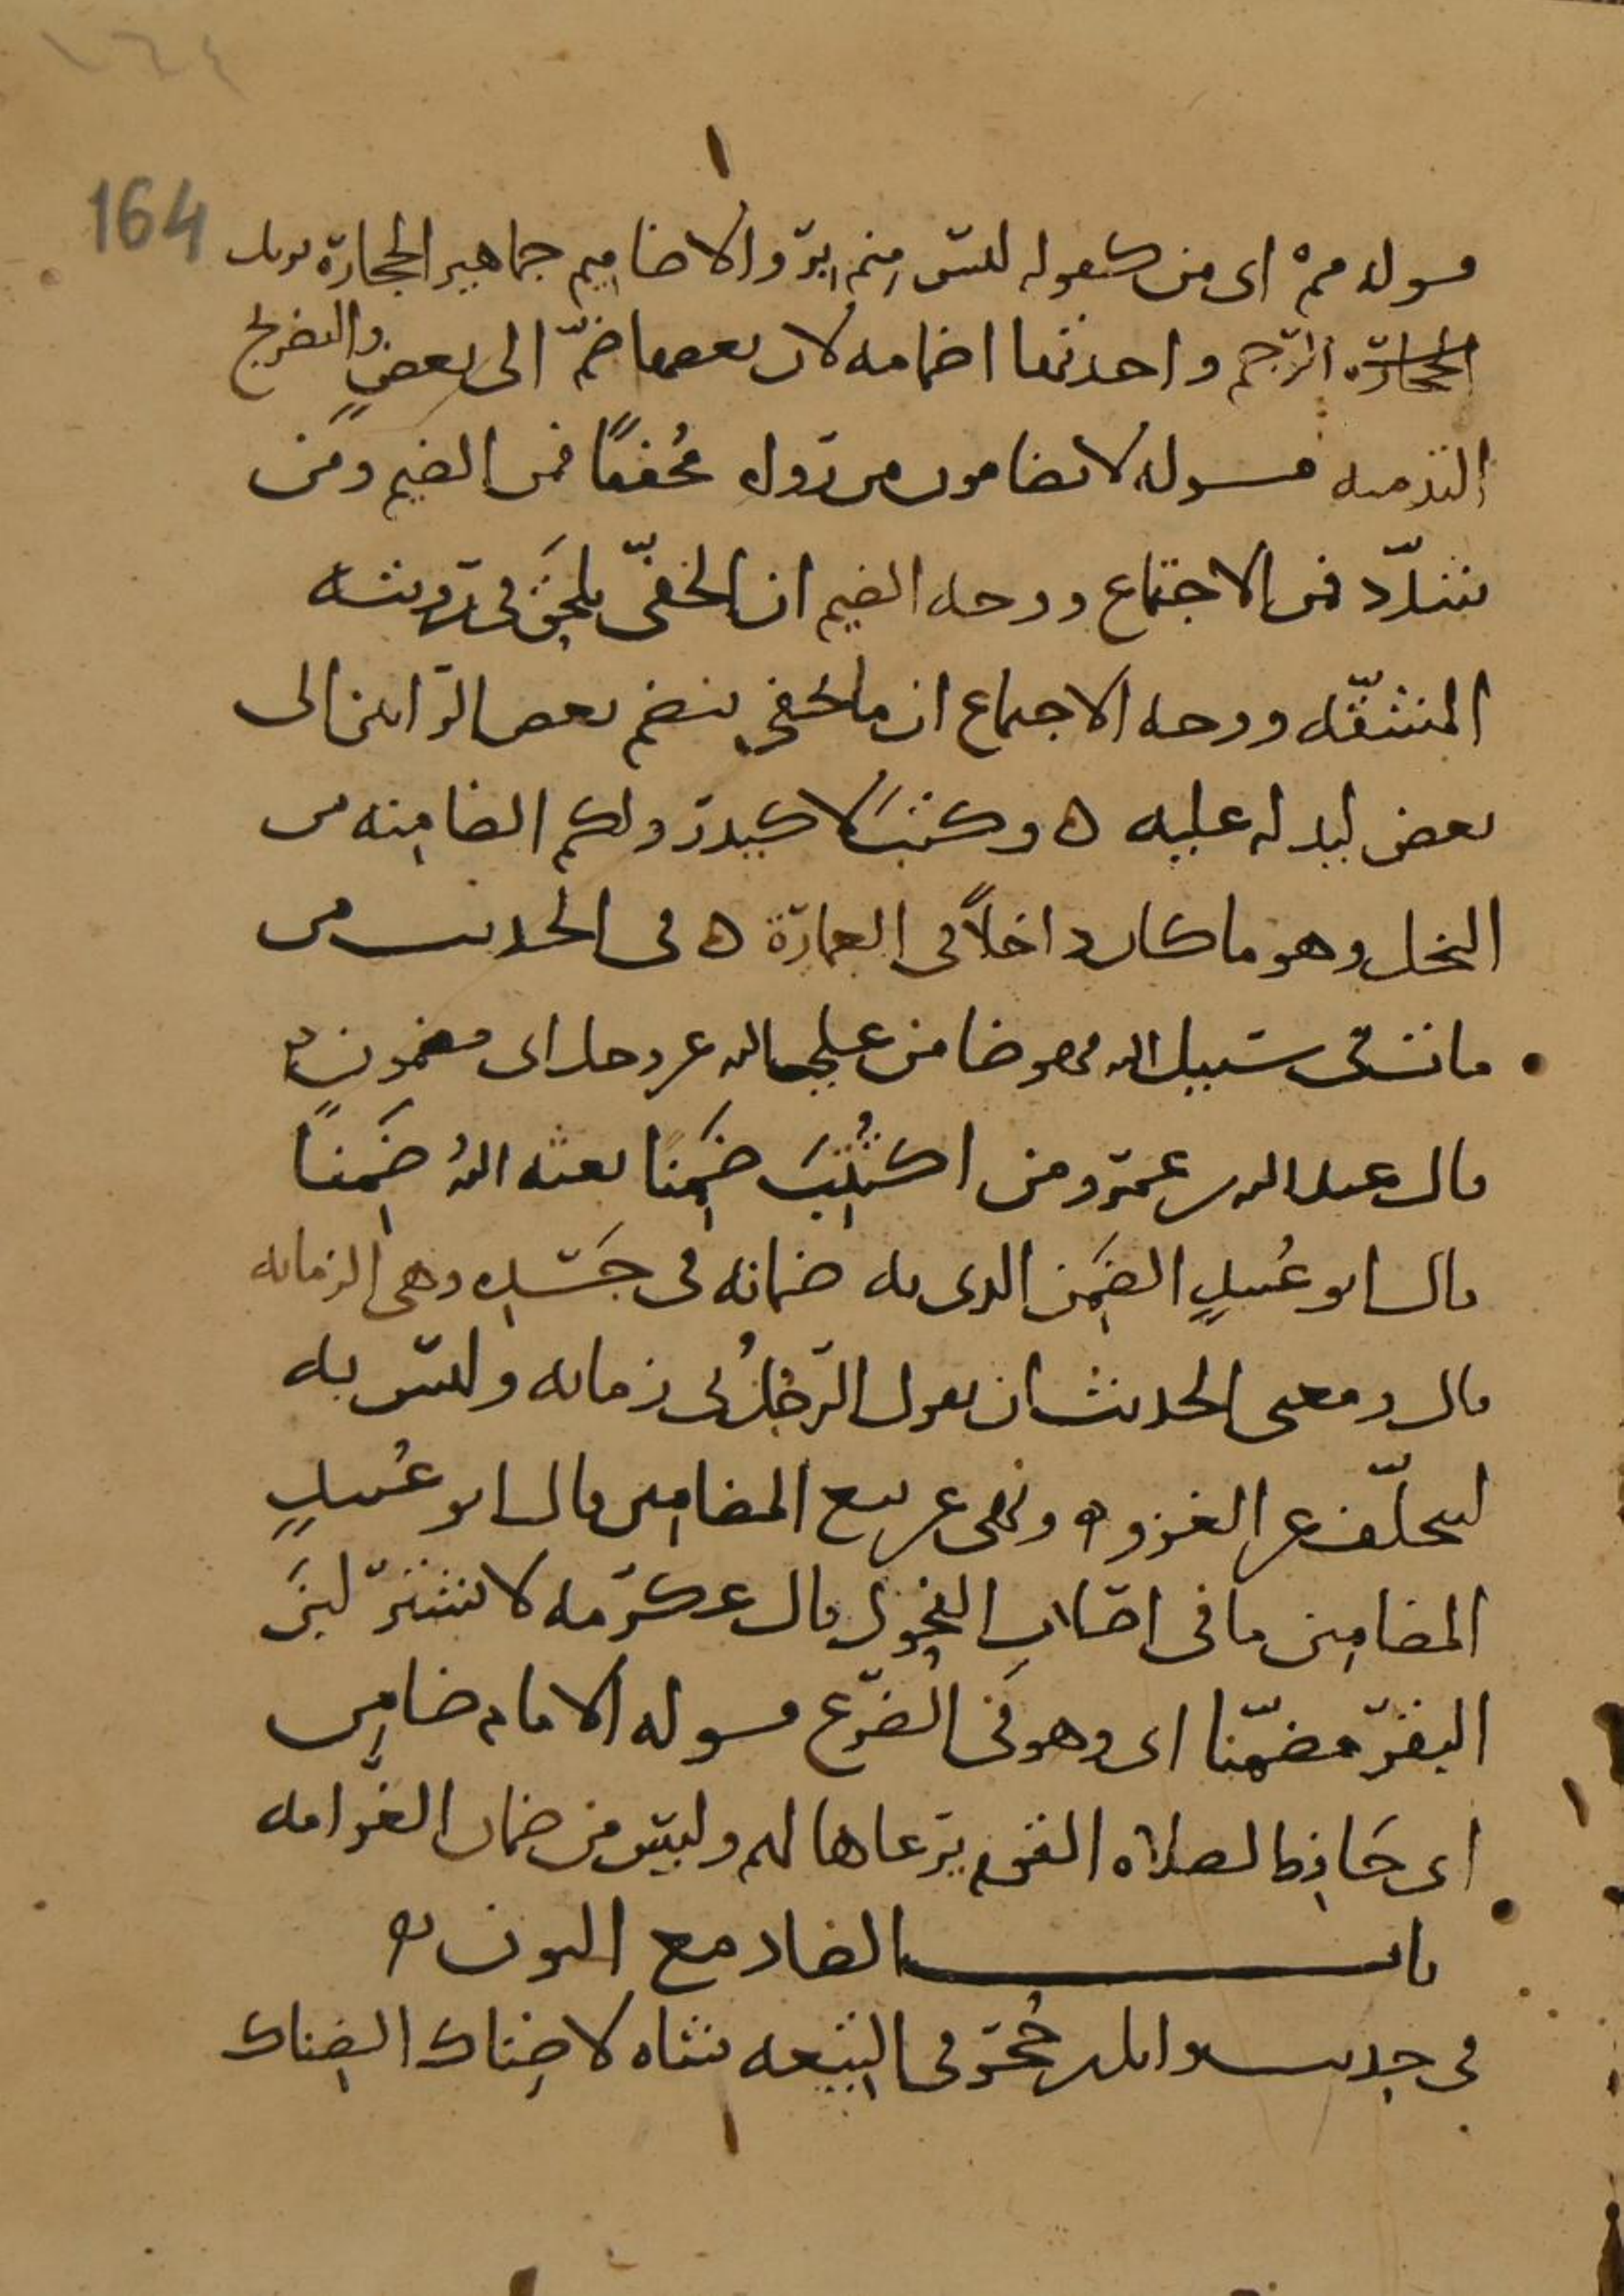 ١٦٤
164
قوله مم اى من كقوله ليس منم بر والاضاميم جماهير الحجارة يريد
الحجارة الرجم واحدتها اضمامه لان بعضها ضم الى بعض والتضريج
التدميه قوله لا تضامون من رواه مخففا فمن الضيم ومن
شدد فمن الاجتماع ووجه الضيم ان الخفي يلحق في رؤيته
المشقه ووجه الاجتماع ان ما يخفي ينضم بعض الرائين الى
بعض ليدله عليه ه وكتب لاكيدر ولكم الضامنه من
النخل وهو ما كان داخلا في العمارة ه في الحديث من
مات في سبيل الله فهو ضامن على الله عز وجل اى مضمون ه
قال عبد الله بن عمرو من اكتتب ضمنا بعثه الله ضمنا
قال ابو عبيد الضمن الذى به ضمانه في جسده وهى الزمانه
قال ومعنى الحديث ان يقول الرجل بى زمانه وليس به
ليتخلف عن الغزو ه ونهى عن بيع المضامين قال ابو عبيد
المضامين ما في اصلاب الفحول قال عكرمه لا تشتر لبن
البقر مضمنا اى وهو في الضرع قوله الامام ضامن
اى حافظ لصلاه القوم يرعاها لهم وليس من ضمان الغرامه
باب الضاد مع النون ه
في حديث وايل بن حجر في التيعه شاه لا ضناك الضناك